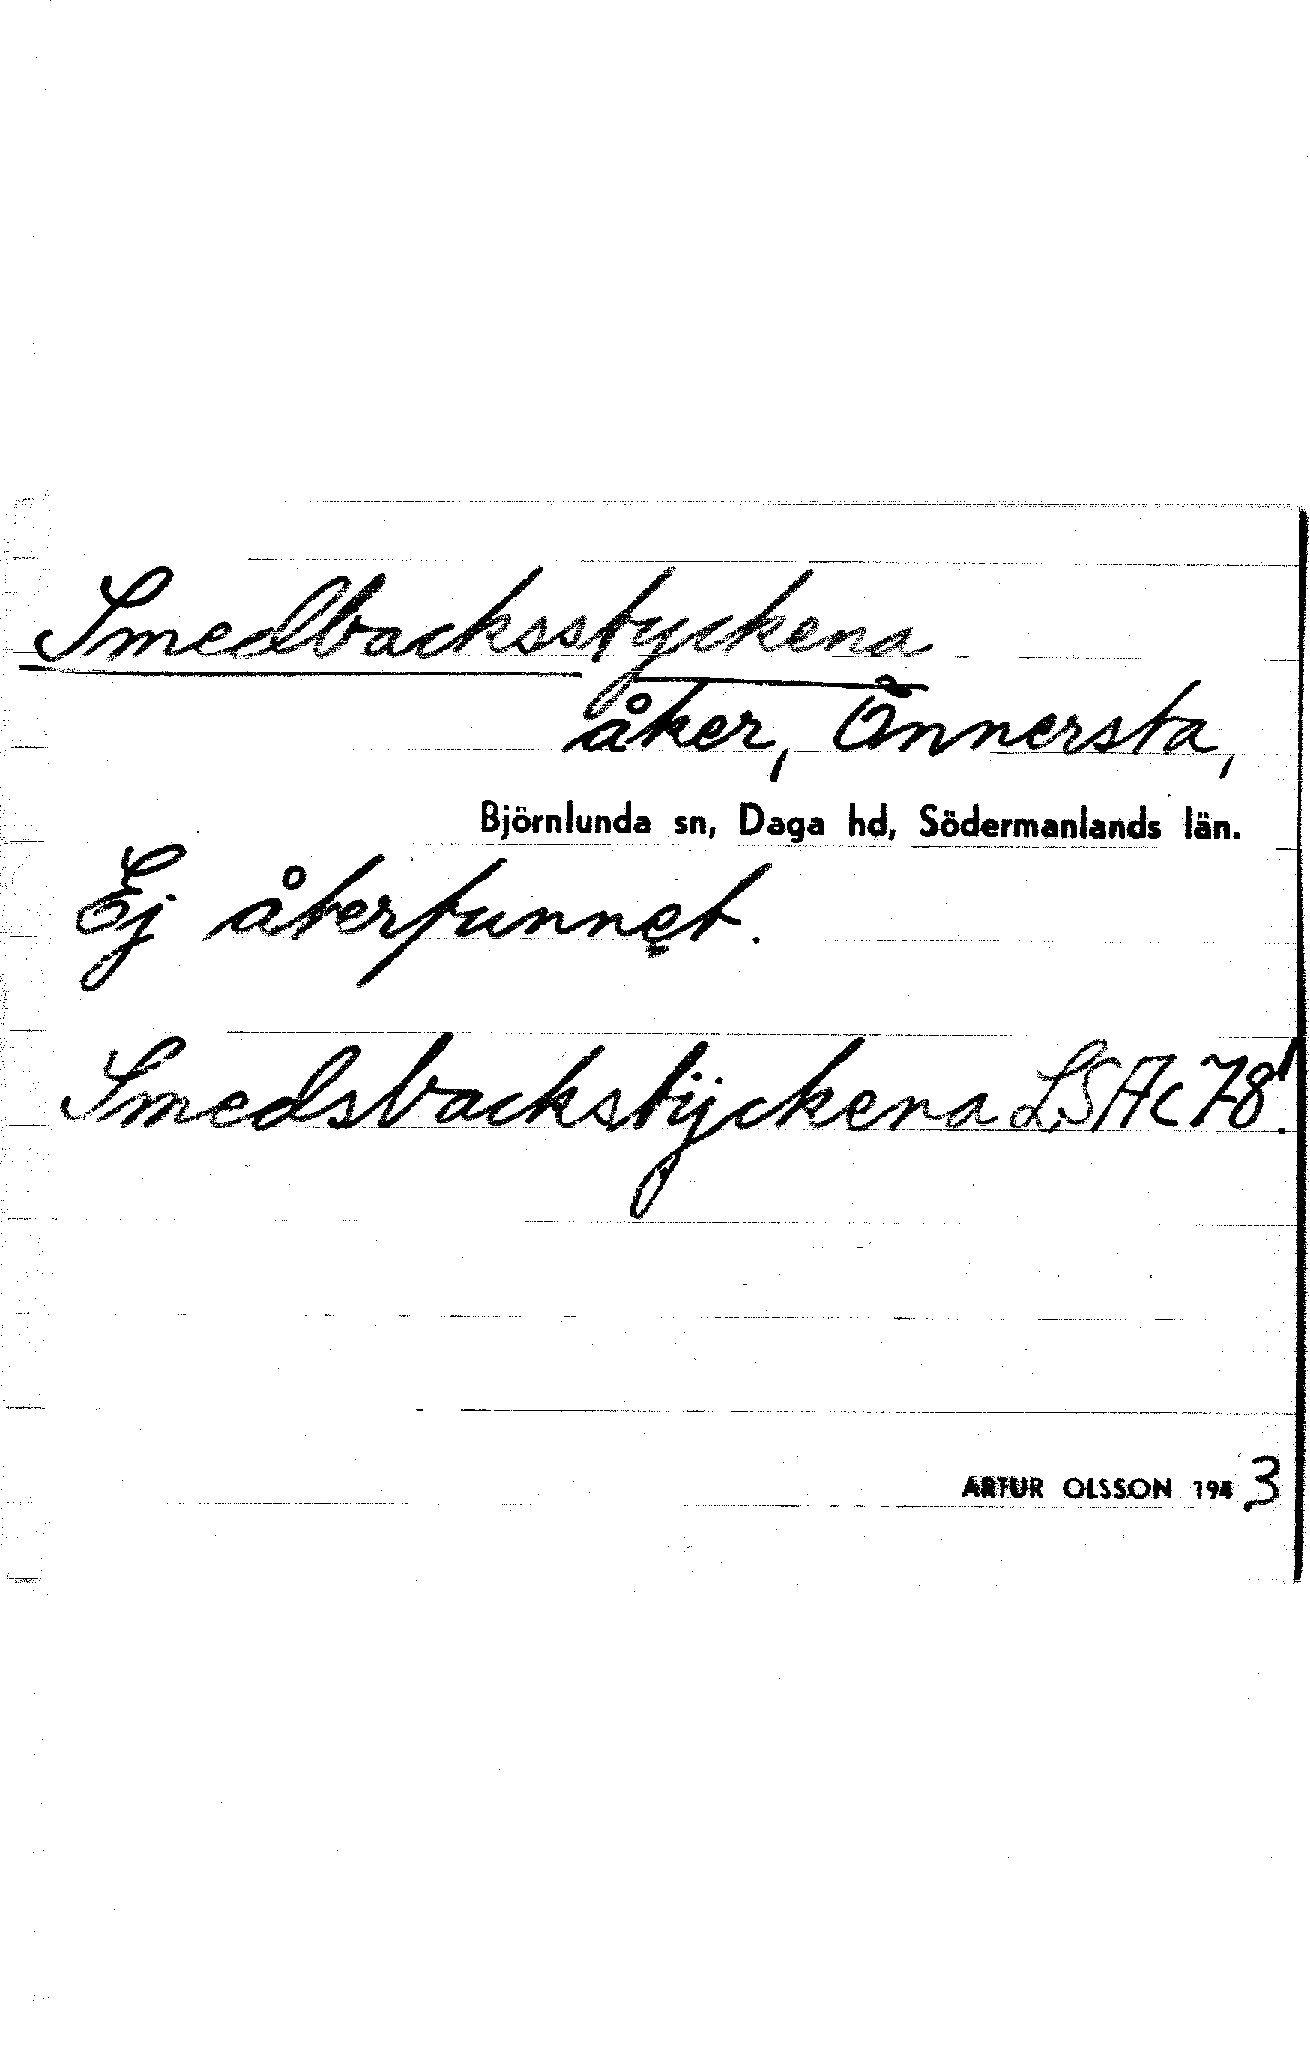 Smedbacksstyckena
åker, Önnersta,
Björnlunda sn, Daga hd, Södermanlands län.
Ej återfunnet.
Smedsbackstÿckena LSA C 78!
ARTUR OLSSON 1943